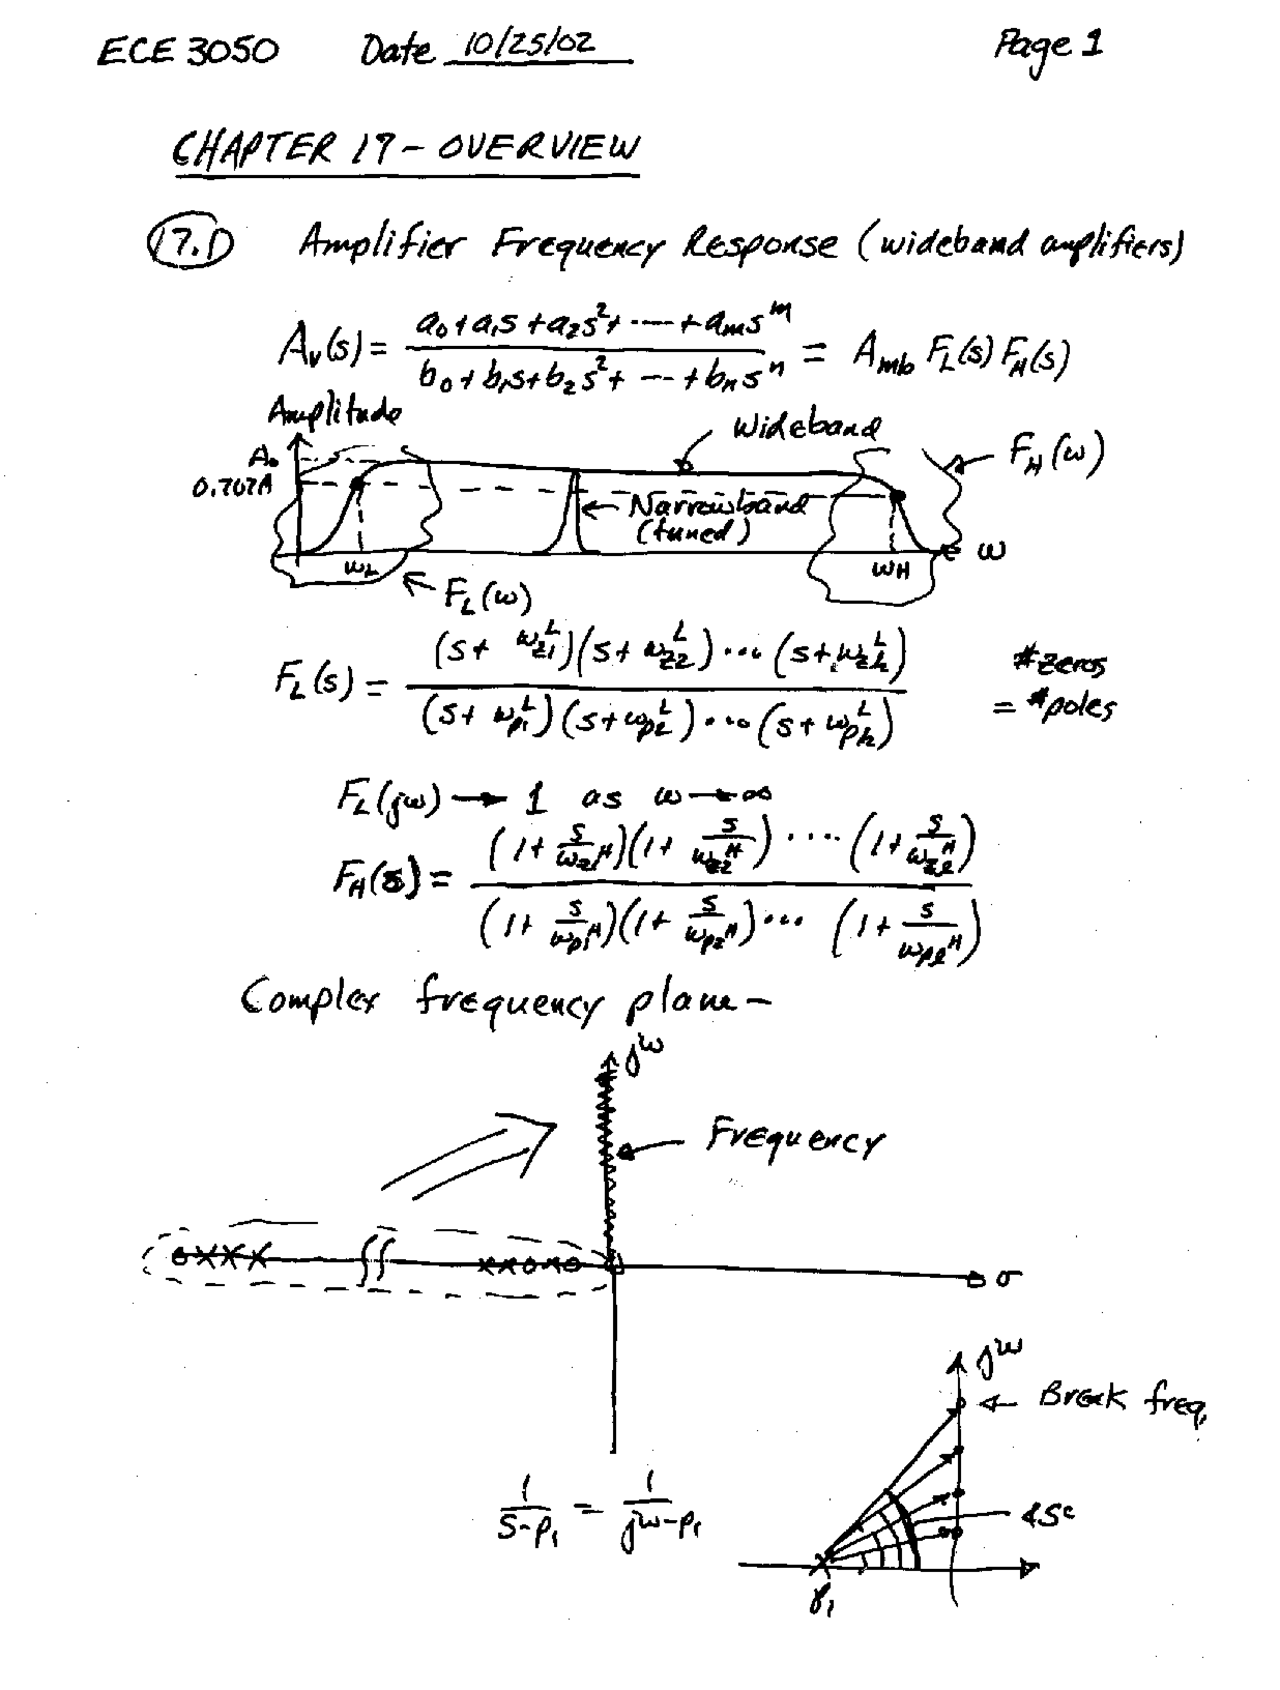 ECE 3050 Date 10/25/02 Page 1
CHAPTER 17 - OVERVIEW
17.1 Amplifier Frequency Response (wideband amplifiers)
A_v(s) = (a_0 + a_1 s + a_2 s^2 + --- + a_m s^m) / (b_0 + b_1 s + b_2 s^2 + --- + b_n s^n) = A_mb F_L(s) F_H(s)
Amplitude
Wideband
A_o
F_H(ω)
0.707A
Narrowband
(tuned)
ω
ω_L
ω_H
F_L(ω)
F_L(s) = (s + ω_z1^L)(s + ω_z2^L) ... (s + ω_zk^L) / (s + ω_p1^L)(s + ω_p2^L) ... (s + ω_pk^L)
#zeros
= #poles
F_L(jω) → 1 as ω → ∞
F_H(s) = (1 + s/ω_z1^H)(1 + s/ω_z2^H) .... (1 + s/ω_zl^H) / (1 + s/ω_p1^H)(1 + s/ω_p2^H) ... (1 + s/ω_pl^H)
Complex frequency plane -
jω
Frequency
σ
jω
Break freq.
1/(s-p_1) = 1/(jω-p_1)
45°
p_1